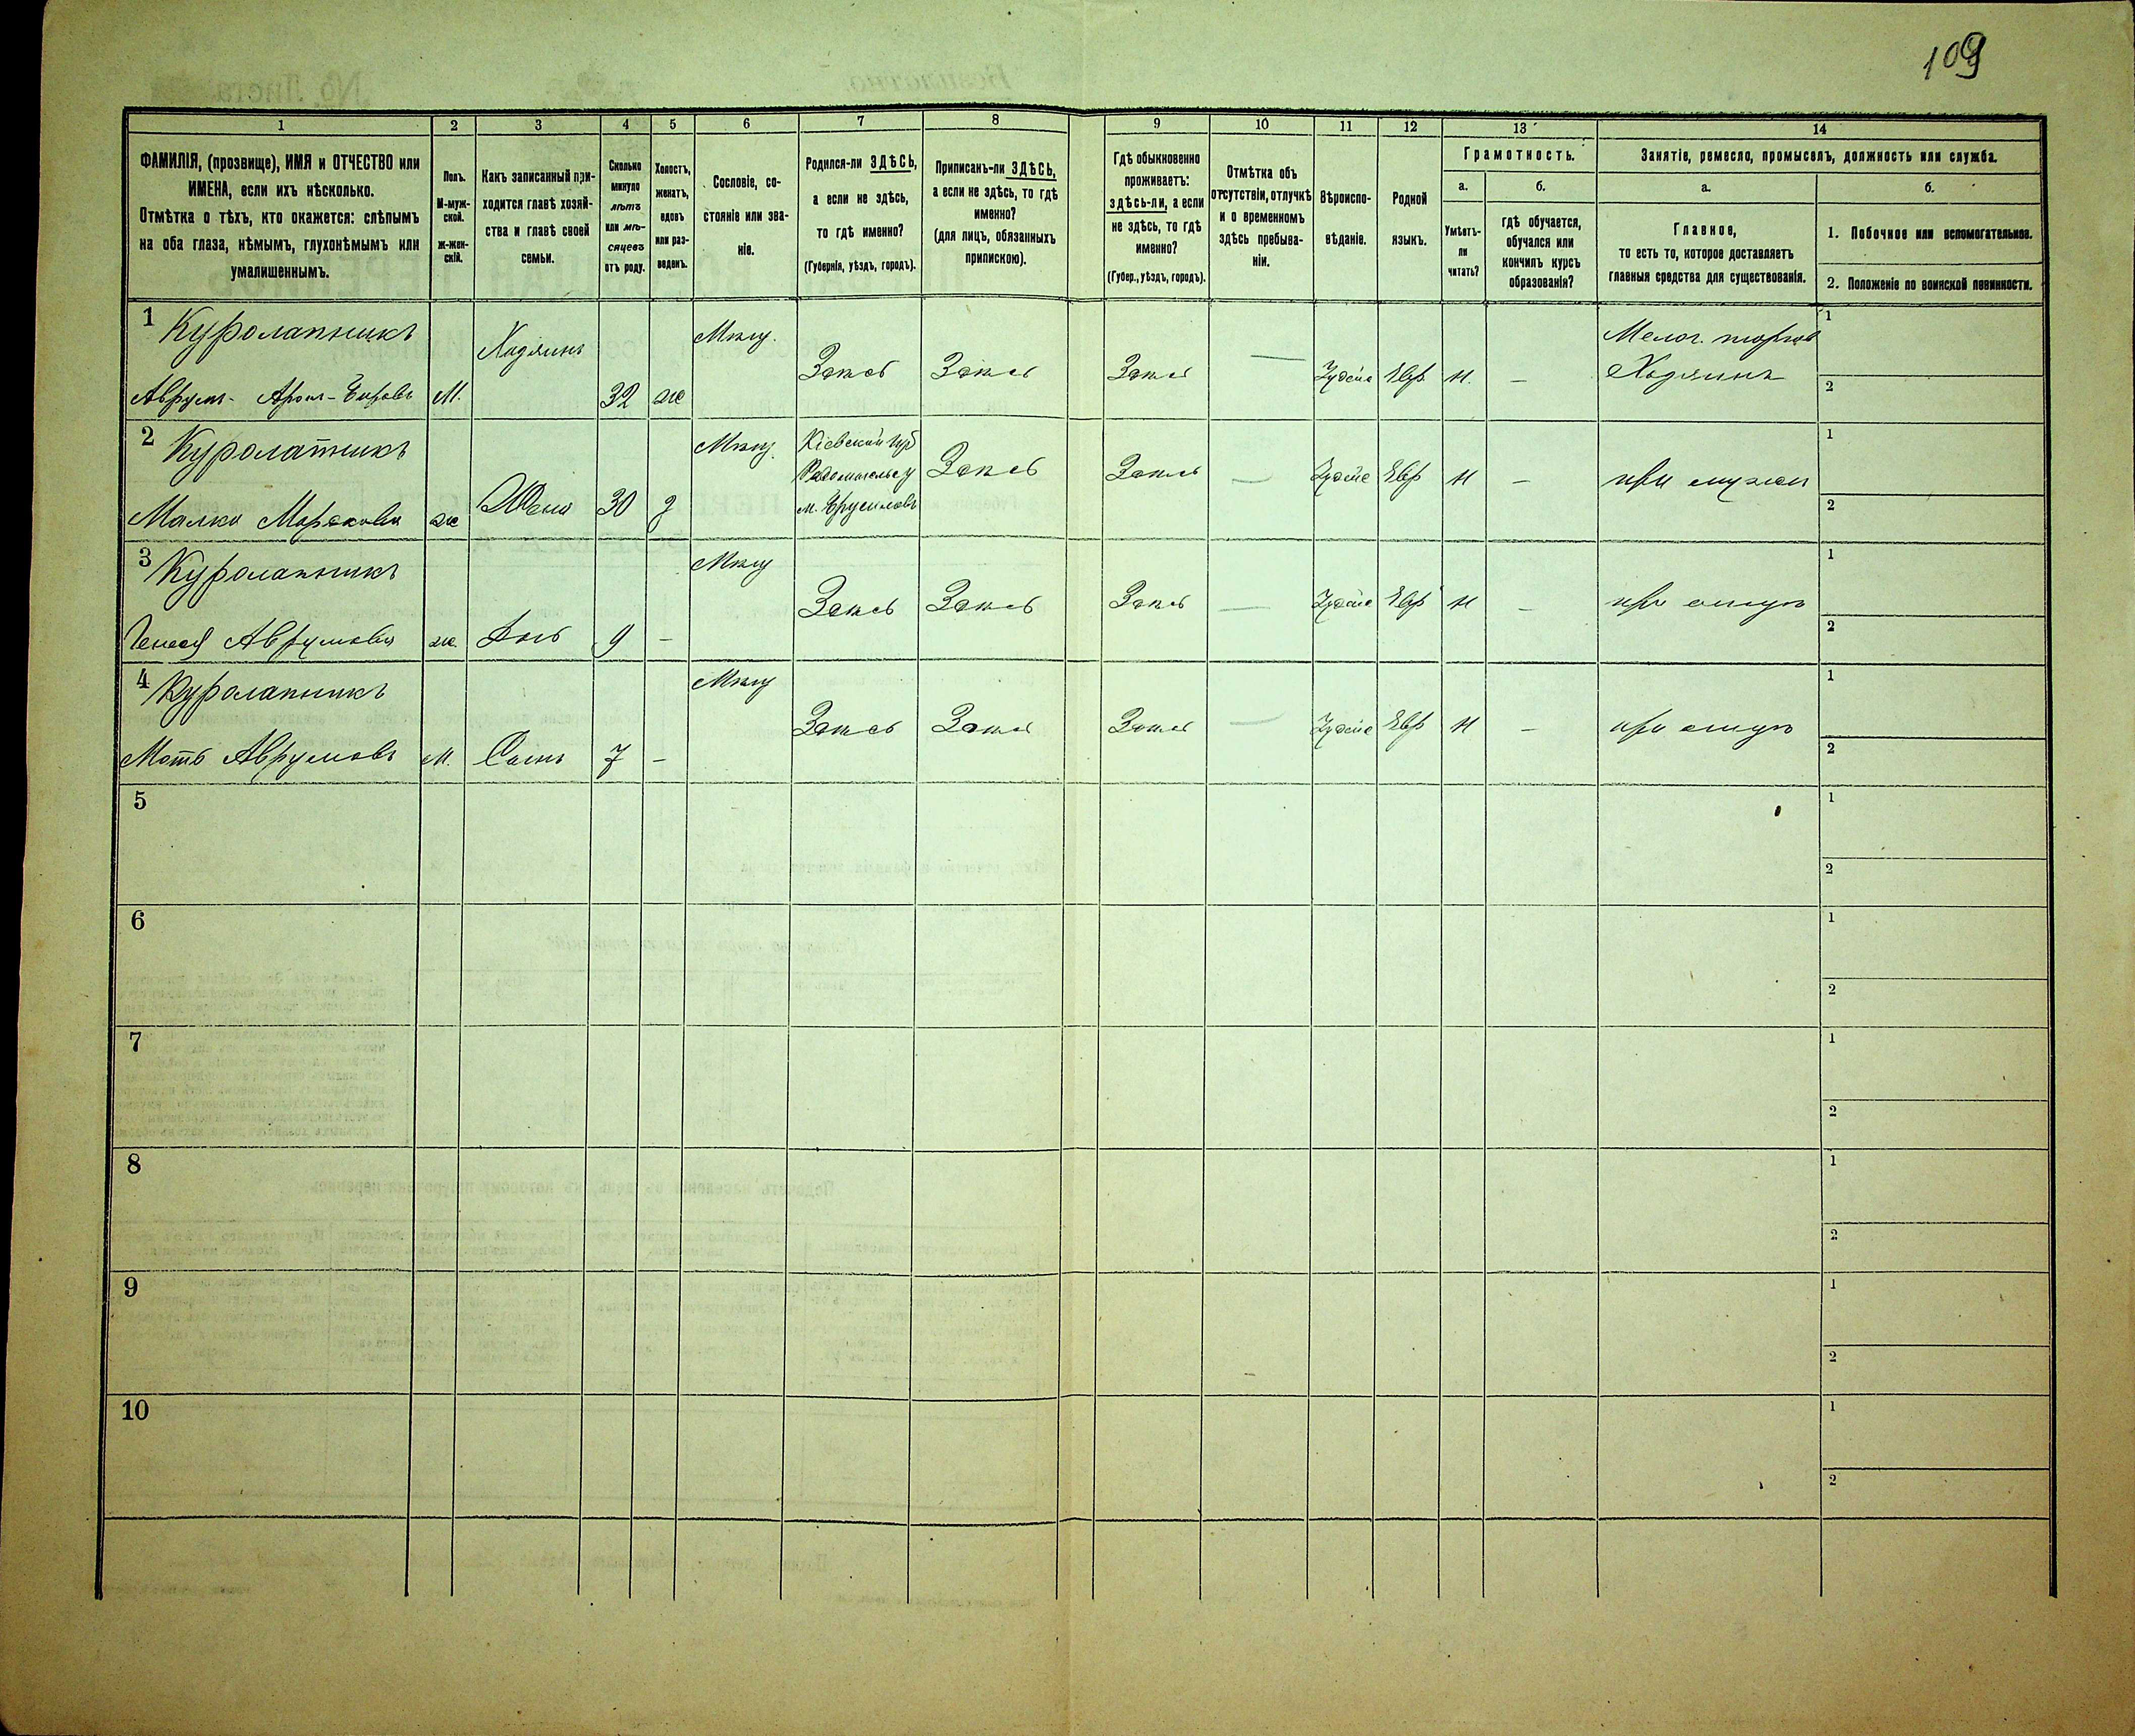 109
1 2 3 4 5 6 7 8 9 10 11 12 13 14
ФАМИЛІЯ, (прозвище), ИМЯ и ОТЧЕСТВО или
ИМЕНА, если ихъ нѣсколько.
Отмѣтка о тѣхъ, кто окажется: слѣпымъ
на оба глаза, нѣмымъ, глухонѣмымъ или
умалишеннымъ.
Полъ.
М-муж-
ской.
Ж-жен-
скій.
Какъ записанный при-
ходится главѣ хозяй-
ства и главѣ своей
семьи.
Сколько
минуло
лѣтъ
или мѣ-
сяцевъ
отъ роду.
Холостъ,
женатъ,
вдовъ
или раз-
веденъ.
Сословіе, со-
стояніе или зва-
ніе.
Родился-ли ЗДѢСЬ,
а если не здѣсь,
то гдѣ именно?
(Губернія, уѣздъ, городъ).
Приписанъ-ли ЗДѢСЬ,
а если не здѣсь, то гдѣ
именно?
(для лицъ, обязанныхъ
припискою).
Гдѣ обыкновенно
проживаетъ:
здѣсь-ли, а если
не здѣсь, то гдѣ
именно?
(Губер., уѣздъ, городъ).
Отмѣтка объ
отсутствіи, отлучкѣ
и о временномъ
здѣсь пребыва-
ніи.
Вѣроиспо-
вѣданіе.
Родной
языкъ.
Грамотность.
а.
Умѣетъ-
ли
читать?
б.
гдѣ обучается,
обучался или
кончилъ курсъ
образованія?
Занятіе, ремесло, промыселъ, должность или служба.
а.
Главное,
то есть то, которое доставляетъ
главныя средства для существованія.
б.
1. Побочное или вспомогательное.
2. Положеніе по воинской повинности.
1 Куролапникъ Хозяинъ Мѣщ. Мелоч. торгов 1
Здѣсь Здѣсь Здѣсь — Іудейс Евр н. — Хозяинъ
Аврумъ- М. 32 ж 2
2 Куролапникъ Мѣщ. Кіевской губ 1
Жена Радомысльс у Здѣсь Здѣсь — Іудейс Евр н — при мужѣ
Малка ж 30 з м. Брусиловъ 2
3 Куролапникъ Мѣщ 1
Здѣсь Здѣсь Здѣсь — Іудейс Евр н — при отцѣ
Аврумова ж. Дочь 9 — 2
4 Куролапникъ Мѣщ 1
Здѣсь Здѣсь Здѣсь — Іудейс Евр н — при отцѣ
Моть Аврумовъ М. Сынъ 7 — 2
5 1
2
6 1
2
7 1
2
8 1
2
9 1
2
10 1
2